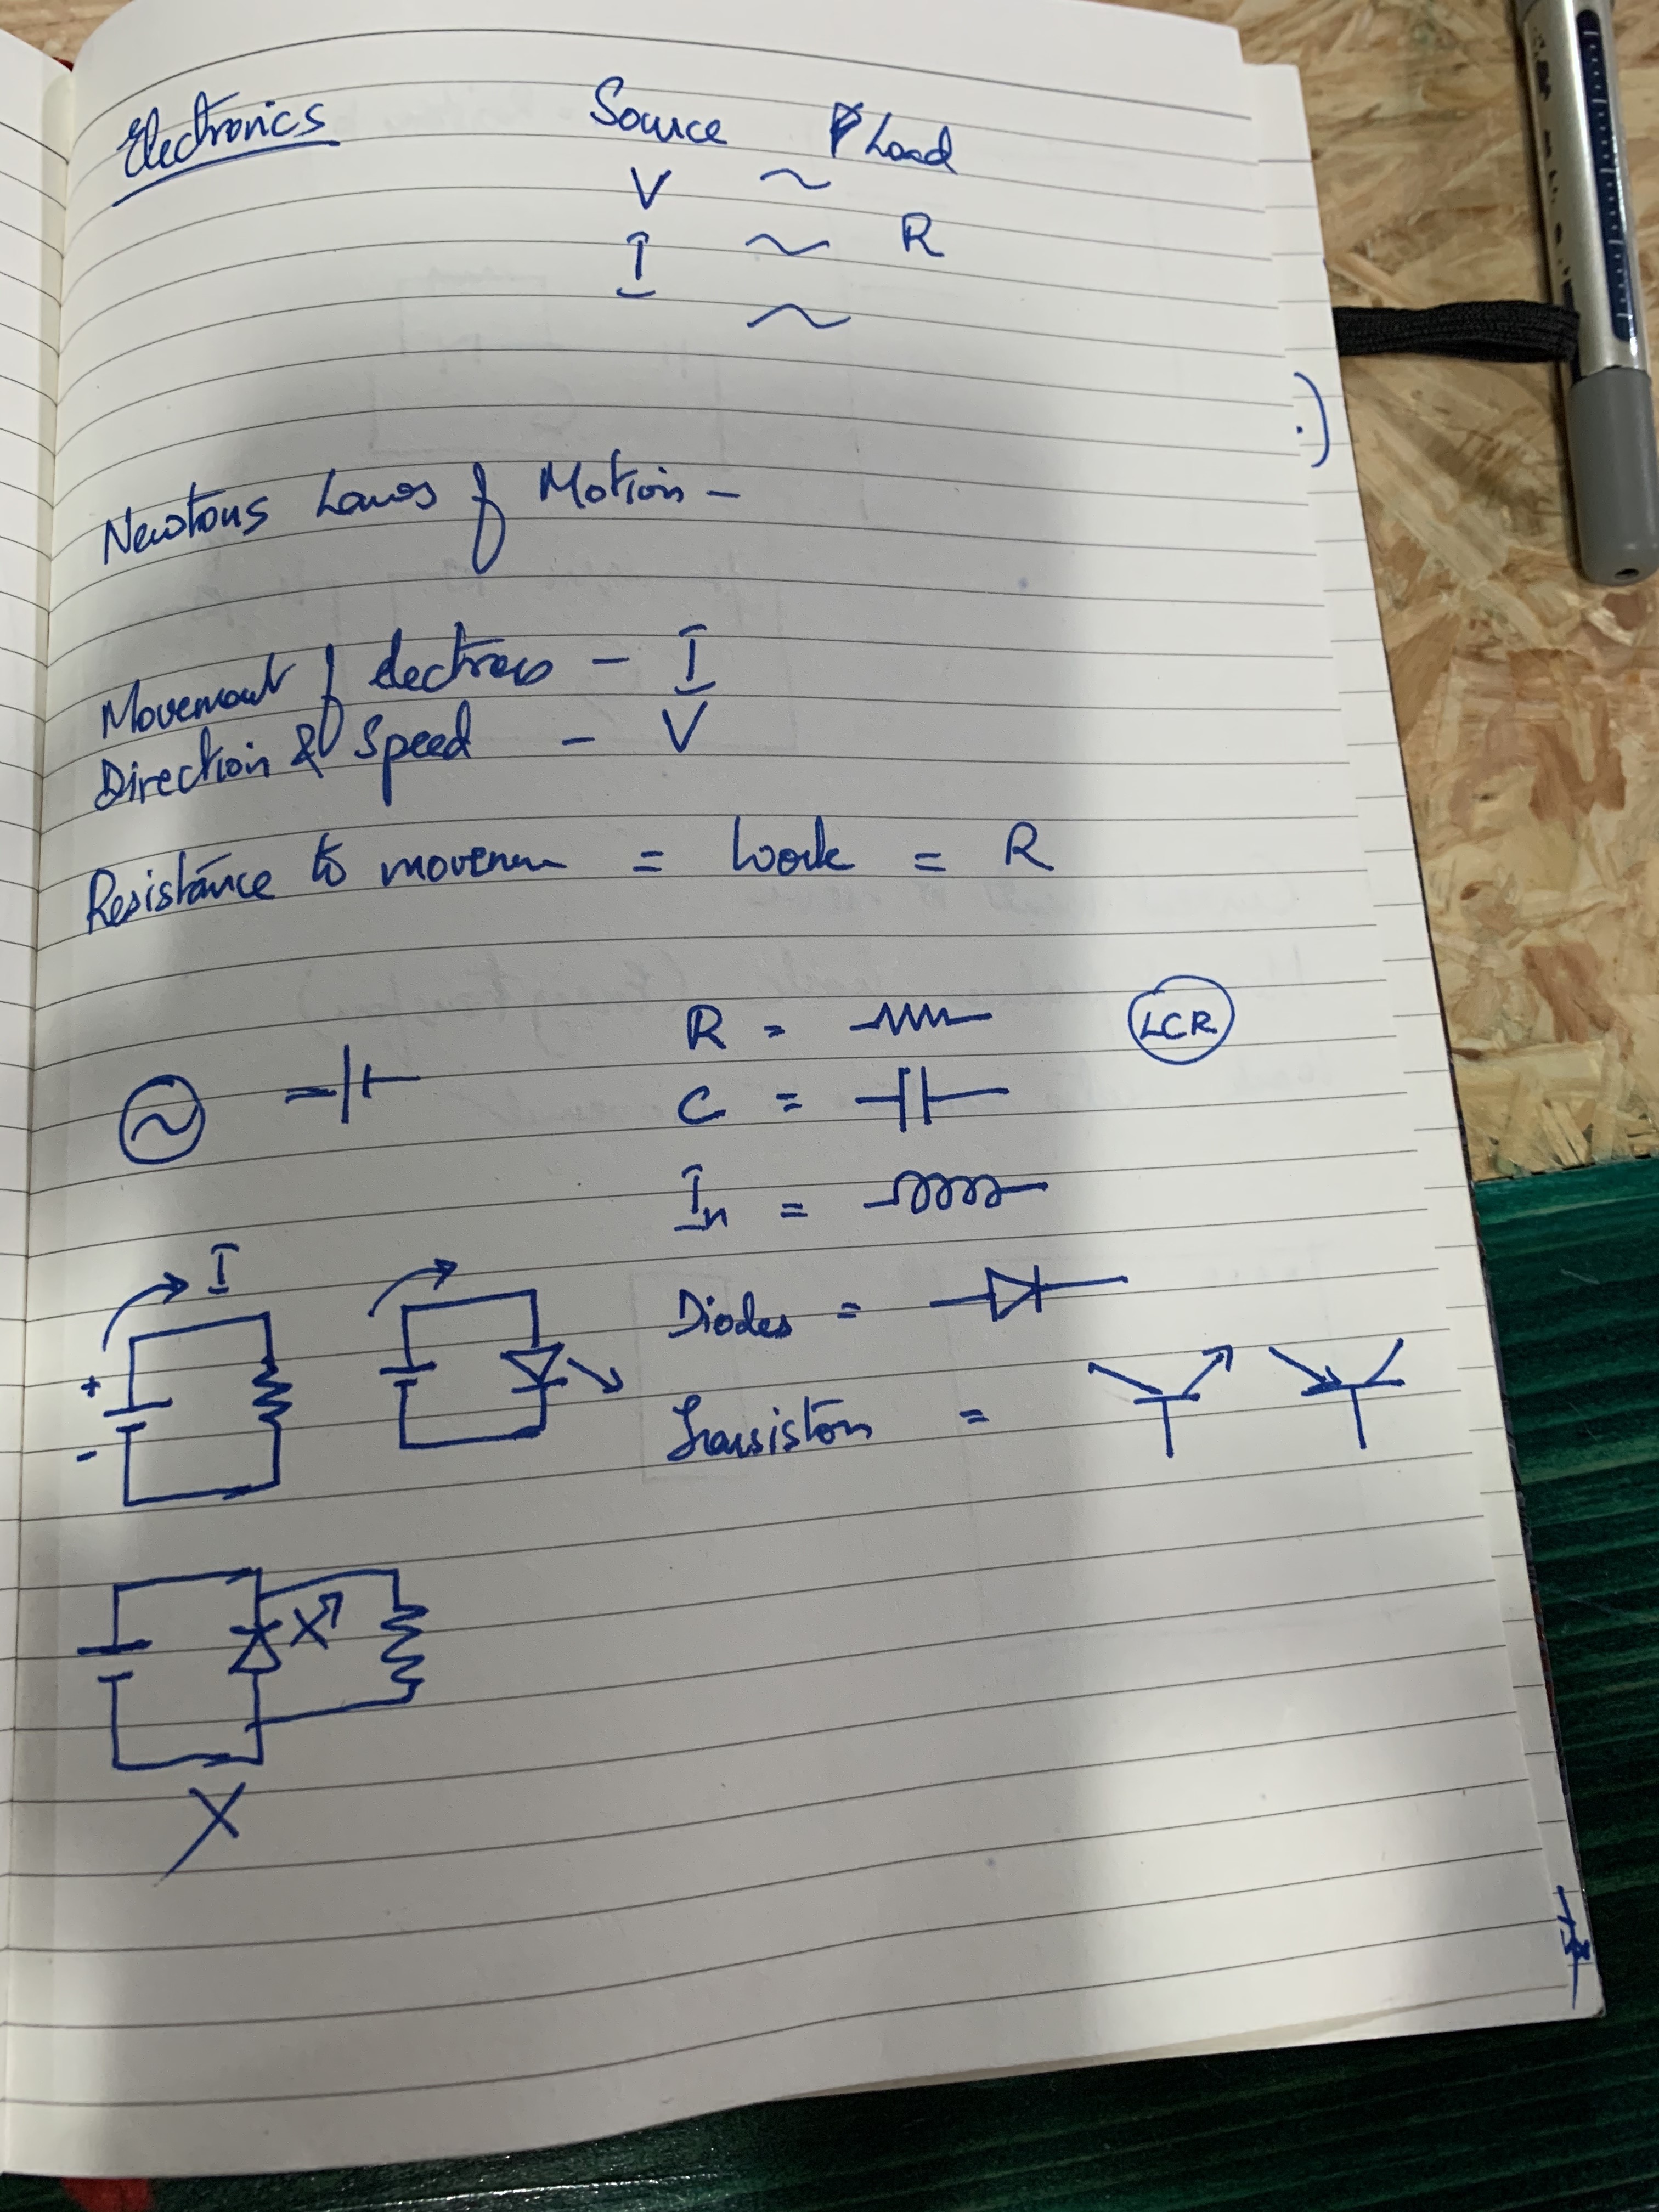 Electronics
Source Load
V ~
I ~ R
~
Newtons Laws of Motion -
Movement of electrons - I
Direction & Speed - V
Resistance to movemen = Work = R
R =
LCR
C =
In =
I
Diodes =
+
-
Transistors =
X
X